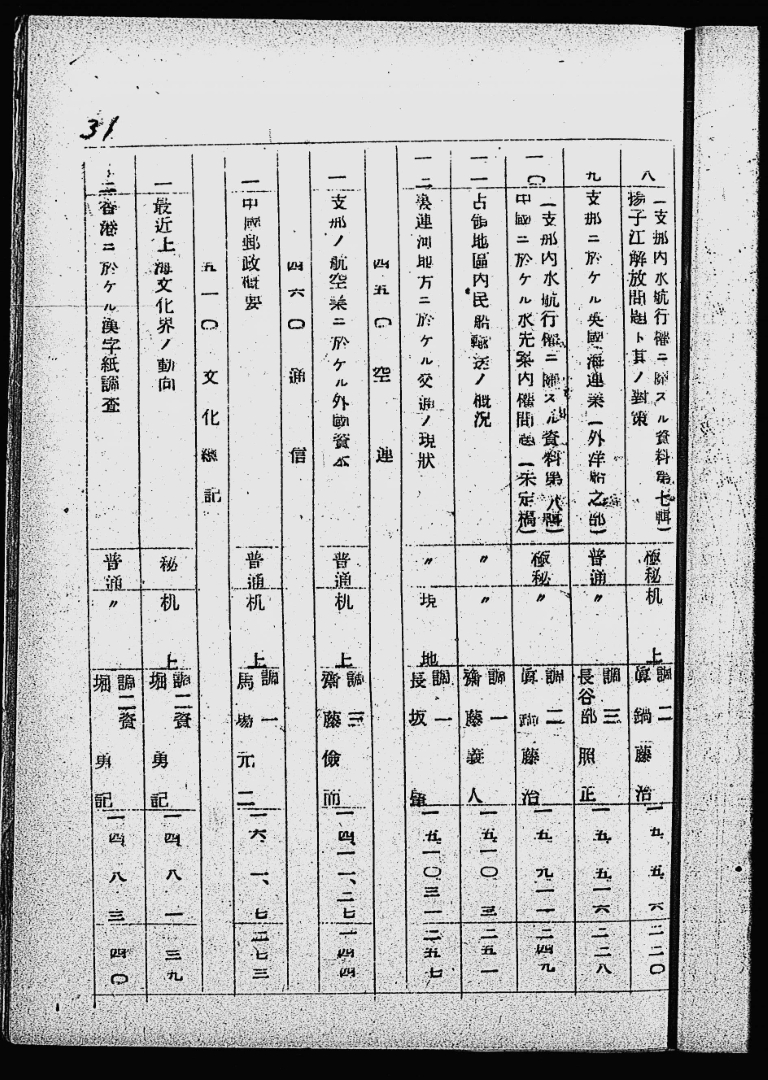 31
八
(支那内水航行權ニ關スル資料第七輯)
揚子江解放問題ト其ノ對策
極秘
机上
調二
眞鍋藤治
一五、五、六
二二〇
九
支那ニ於ケル英國海運業(外洋船之部)
普通
〃
調三
長谷部照正
一五、五、一六
二二八
一〇
(支那内水航行權ニ關スル資料第八輯)
中國ニ於ケル水先案内權問題(未定稿)
極秘
〃
調二
眞鍋藤治
一五、九、一一
二四九
一一
占領地區内民船輸送ノ概況
〃
〃
調一
齋藤義人
一五、一〇、三
二五一
一二
裏運河地方ニ於ケル交通ノ現狀
〃
現地
調一
長坂
一五、一〇、三一
二五七
四五〇 空運
一
支那ノ航空業ニ於ケル外國資本
普通
机上
調三
齋藤儉而
一四、一一、二七
一四四
四六〇 通信
一
中國郵政概要
普通
机上
調一
馬場元二
一六、一、七
二七三
五一〇 文化總記
一
最近上海文化界ノ動向
秘
机上
調二資
堀勇記
一四、八、一
三九
二
香港ニ於ケル漢字紙調査
普通
〃
調二資
堀勇記
一四、八、三
四〇